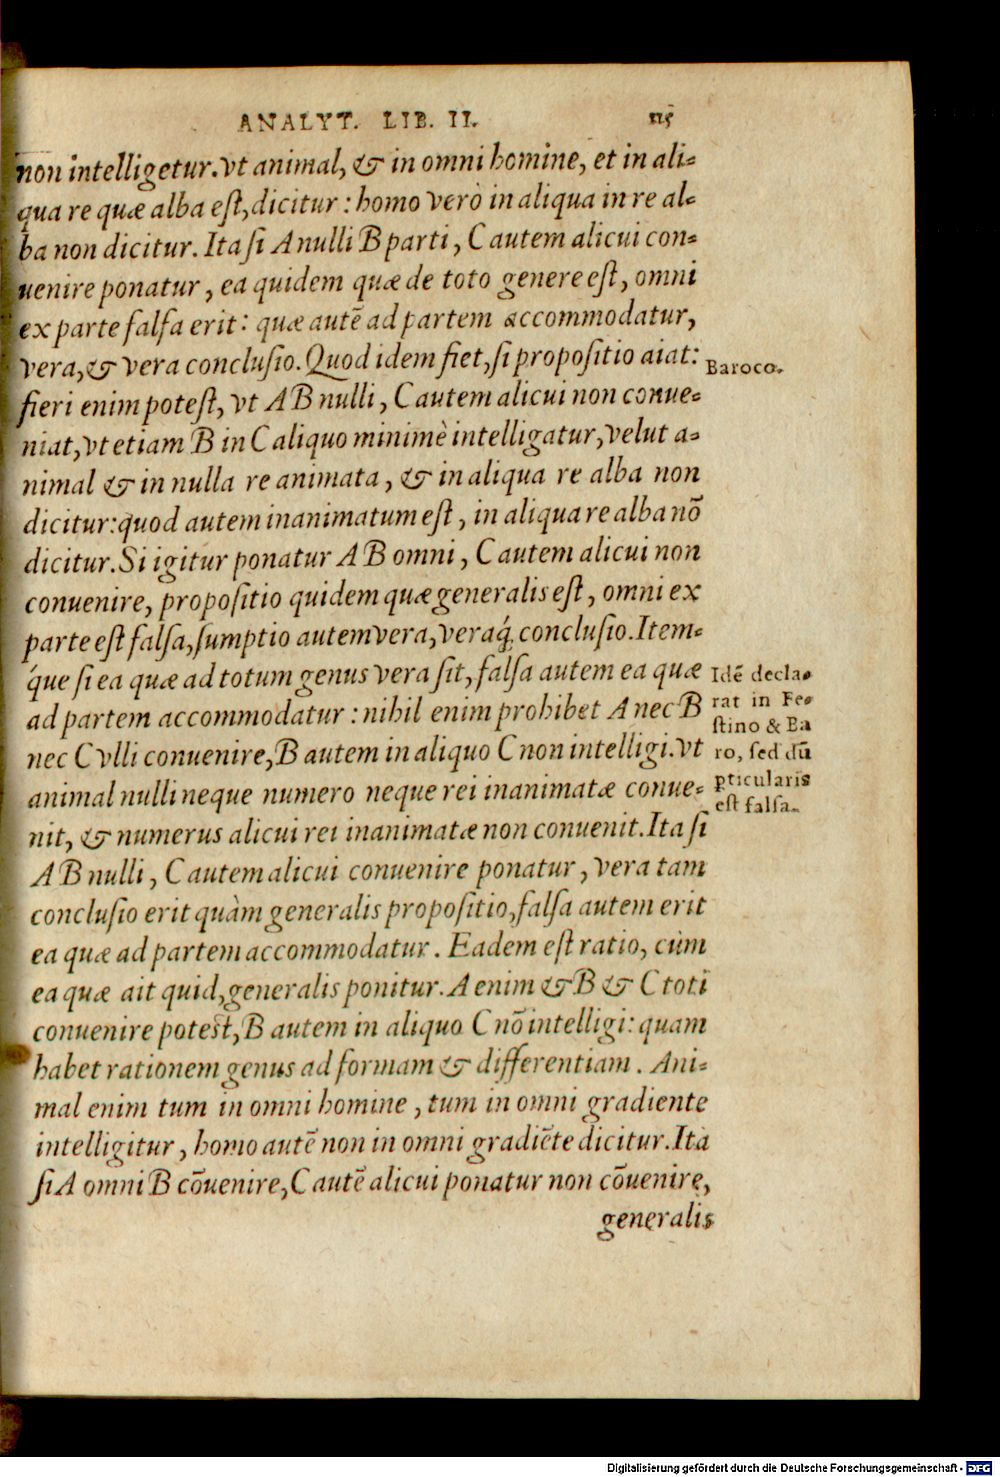 ANALYT. LIB. II. 115
non intelligetur. vt animal, & in omni homine, et in ali-
qua re quæ alba est, dicitur: homo verò in aliqua in re al-
ba non dicitur. Ita si A nulli B parti, C autem alicui con-
uenire ponatur, ea quidem quæ de toto genere est, omni
ex parte falsa erit: quæ autẽ ad partem accommodatur,
vera, & vera conclusio. Quod idem fiet, si propositio aiat:
Baroco.
fieri enim potest, vt A B nulli, C autem alicui non conue-
niat, vt etiam B in C aliquo minimè intelligatur, velut a-
nimal & in nulla re animata, & in aliqua re alba non
dicitur: quod autem inanimatum est, in aliqua re alba nõ
dicitur. Si igitur ponatur A B omni, C autem alicui non
conuenire, propositio quidem quæ generalis est, omni ex
parte est falsa, sumptio autem vera, veraq́; conclusio. Item-
q́ue si ea quæ ad totum genus vera sit, falsa autem ea quæ
ad partem accommodatur: nihil enim prohibet A nec B
nec C vlli conuenire, B autem in aliquo C non intelligi. vt
animal nulli neque numero neque rei inanimatæ conue-
nit, & numerus alicui rei inanimatæ non conuenit. Ita si
Idẽ decla-
rat in Fe-
stino & Ba
ro, sed dũ
pticularis
est falsa.
A B nulli, C autem alicui conuenire ponatur, vera tam
conclusio erit quàm generalis propositio, falsa autem erit
ea quæ ad partem accommodatur. Eadem est ratio, cùm
ea quæ ait quid, generalis ponitur. A enim & B & C toti
conuenire potest, B autem in aliquo C nõ intelligi: quam
habet rationem genus ad formam & differentiam. Ani-
mal enim tum in omni homine, tum in omni gradiente
intelligitur, homo autẽ non in omni gradiẽte dicitur. Ita
si A omni B cõuenire, C autẽ alicui ponatur non cõuenire,
generalis
Digitalisierung gefördert durch die Deutsche Forschungsgemeinschaft - DFG